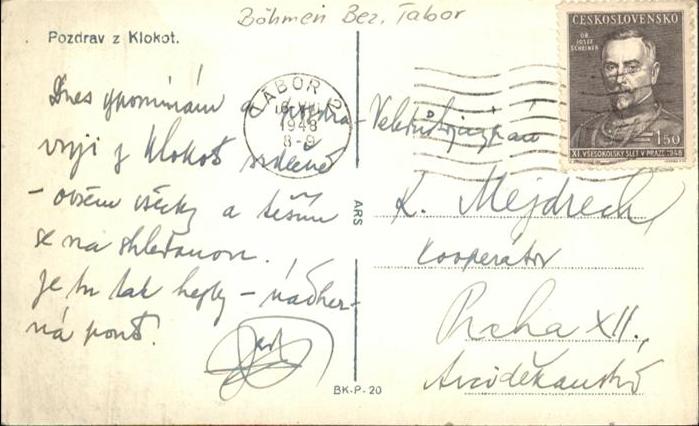 Böhmen Bez. Tabor
Pozdrav z Klokot.
Dnes vzpomínám a
z Klokot srdečně
- ovšem všecky a těším
se na shledanou.
je tu tak hezky - nádher-
ná pouť.
TÁBOR 2
1948
8-9
ČESKOSLOVENSKO
DR.
JOSEF
SCHEINER
1.50
XI. VŠESOKOLSKÝ SLET V PRAZE 1948
K. Mejdrech
kooperátor
Praha XII.,
Arciděkanství
ARS
BK-P-20